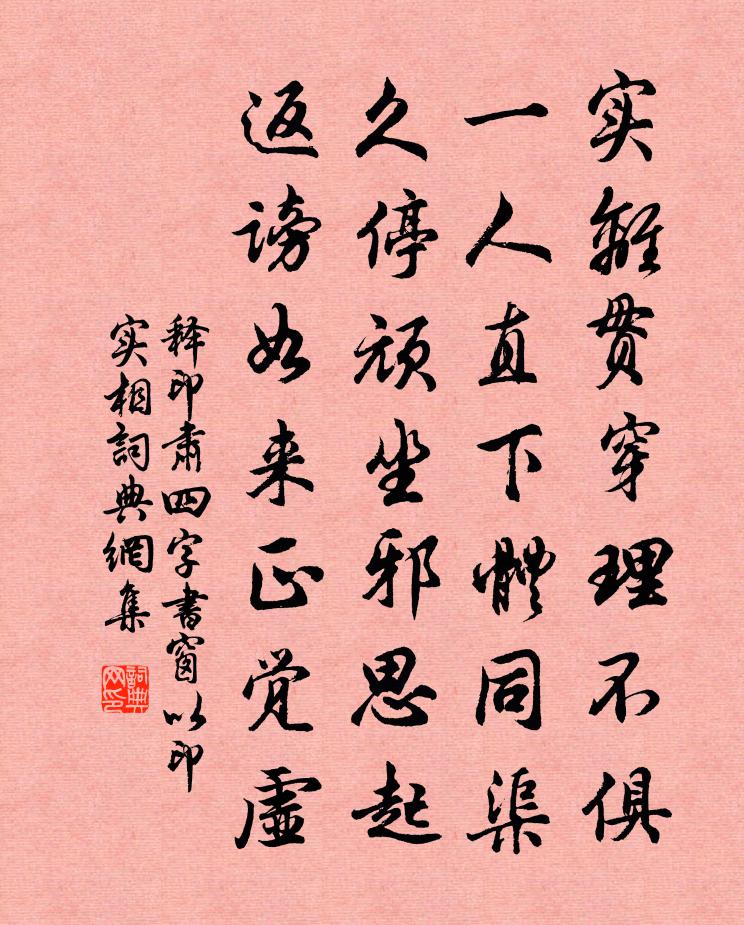 实難贯穿理不俱
一人直下體同渠
久停顽坐邪思起
返谤如来正觉虚
释印肃四字书窗以印
实相詞典網集
詞典网印